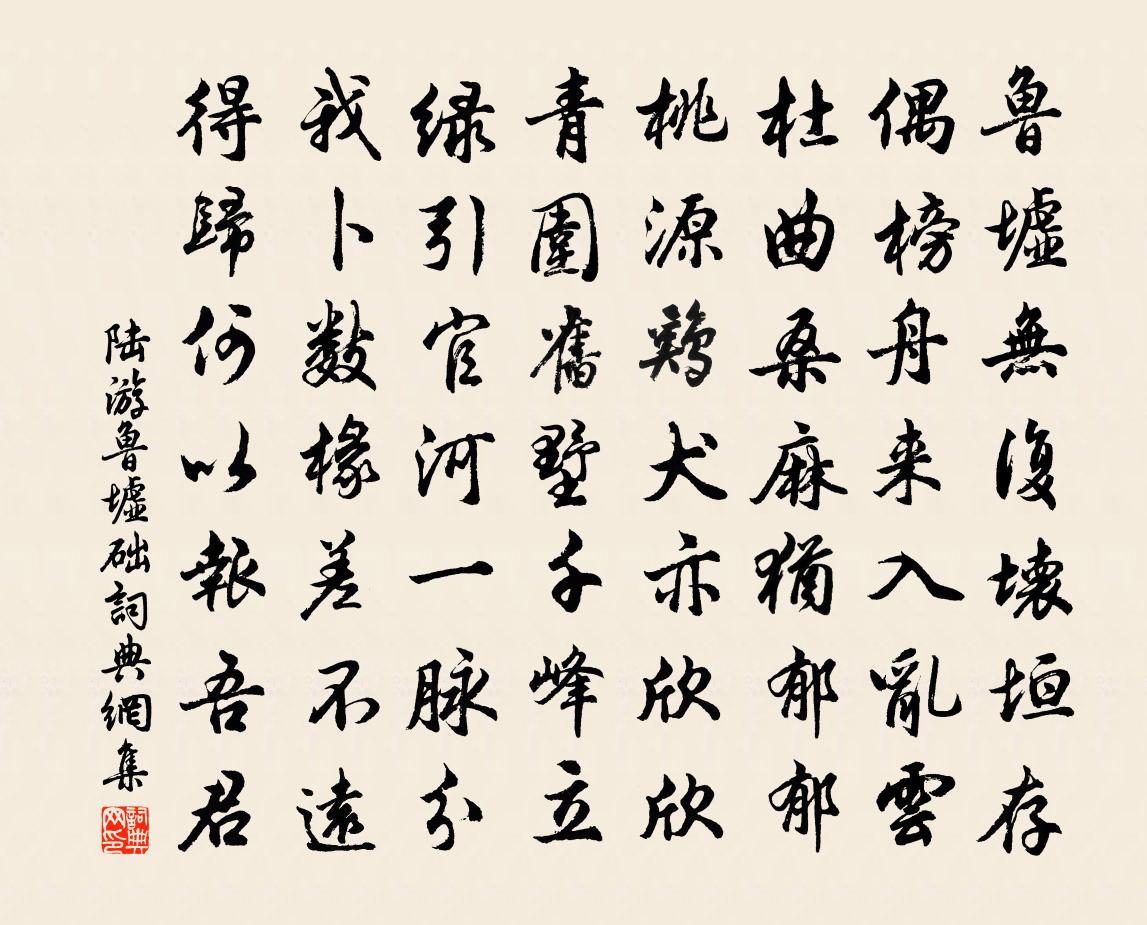 魯墟無復壞垣存
偶榜舟来入亂雲
杜曲桑麻猶郁郁
桃源鷄犬亦欣欣
青圍舊墅千峰立
緑引官河一脉分
我卜數椽差不遠
得歸何以報吾君
陆游魯墟础詞典網集
詞典网印